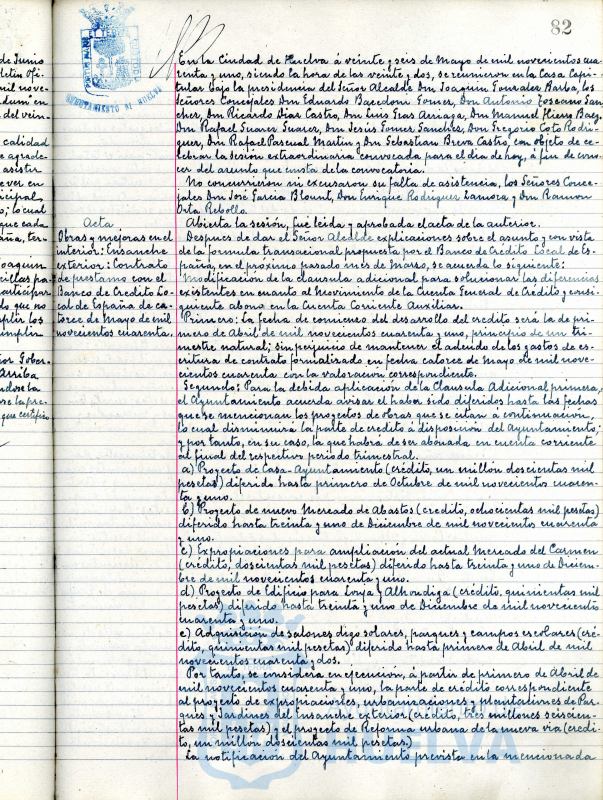 82
AYUNTAMIENTO DE HUELVA
de Junio
letin Ofi-
mil nove-
en
del vein-
calidad
e agrade-
asistir
ever en
ncipal,
o; lo cual
que cada
aña, ter-
Joaquin
cillas pa-
participar
do que no
mplir los
cumplir
ior Gober-
Arriba
ndose la
se la pre-
que certifico
Acta
Obras y mejoras en el
interior: Ensanche
exterior: Contrato
de prestamo con el
Banco de Credito Lo-
cal de España de ca-
torce de Mayo de mil
novecientos cuarenta.
En la Ciudad de Huelva á veinte y seis de Mayo de mil novecientos cua-
renta y uno, siendo la hora de las veinte y dos, se reunieron en la Casa Capi-
tular bajo la presidencia del Señor Alcalde Dn Joaquin Gonzalez Barba, los
Señores Concejales Dn Eduardo Bacedoni Gomez, Dn Antonio Toscano San-
chez, Dn Ricardo Diaz Castro, Dn Luis Eras Arriaga, Dn Manuel Hierro Baez,
Dn Rafael Suarez Suarez, Dn Jesus Gomez Sanchez, Dn Gregorio Coto Rodri-
guez, Dn Rafael Pascual Martin y Dn Sebastian Breva Castro, con objeto de ce-
lebrar la sesión extraordinaria convocada para el dia de hoy, á fin de cono-
cer del asunto que consta de la convocatoria.
No concurrieron ni excusaron su falta de asistencia, los Señores Conce-
jales Don José Garcia Blount, Don Enrique Rodriguez Zamora y Dn Ramon
Orta Rebollo.
Abierta la sesión, fué leida y aprobada el acta de la anterior.
Despues de dar el Señor Alcalde explicaciones sobre el asunto y con vista
de la formula transacional propuesta por el Banco de Crédito Local de Es-
paña, en el próximo pasado més de Marzo, se acuerda lo siguiente:
Modificación de la clausula adicional para solucionar las diferencias
existentes en cuanto al movimiento de la Cuenta General de Crédito y consi-
guiente abono en la Cuenta Corriente Auxiliar.
Primero: La fecha de comienzo del desarrollo del credito será la de pri-
mero de Abril de mil novecientos cuarenta y uno, principio de un tri-
mestre natural; sin perjuicio de mantener el adeudo de los gastos de es-
critura de contrato formalizado en fecha catorce de Mayo de mil nove-
cientos cuarenta con la valoracion correspondiente.
Segundo: Para la debida aplicación de la Clausula Adicional primera,
el Ayuntamiento acuerda avisar el haber sido diferidos hasta las fechas
que se mencionan los proyectos de obras que se citan á continuación,
lo cual disminuirá la parte de credito á disposición del Ayuntamiento;
y por tanto, en su caso, la que habrá de ser abonada en cuenta corriente
al final del respectivo periodo trimestral.
a) Proyecto de Casa-Ayuntamiento (crédito, un millón doscientas mil
pesetas) diferido hasta primero de Octubre de mil novecientos cuaren-
ta y uno.
b) Proyecto de nuevo Mercado de Abastos (credito, ochocientas mil pesetas)
diferido hasta treinta y uno de Diciembre de mil novecientos cuarenta
y uno.
c) Expropiaciones para ampliación del actual Mercado del Carmen
(crédito, doscientas mil pesetas) diferido hasta treinta y uno de Diciem-
bre de mil novecientos cuarenta y uno.
d) Proyecto de Edificio para Lonja y Alhondiga (crédito, quinientas mil
pesetas) diferido hasta treinta y uno de Diciembre de mil novecientos
cuarenta y uno.
e) Adquisición de salones digo solares, parques y campos escolares (cré-
dito, quinientas mil pesetas) diferido hasta primero de Abril de mil
novecientos cuarenta y dos.
Por tanto, se considera en ejecución, á partir de primero de Abril de
mil novecientos cuarenta y uno, la parte de crédito correspondiente
al proyecto de expropiaciones, urbanizaciones y plantaciones de Par-
ques y Jardines del Ensanche exterior (crédito, tres millones seiscien-
tas mil pesetas) y el proyecto de Reforma urbana de la nueva via (credi-
to, un millón doscientas mil pesetas)
La notificación del Ayuntamiento prevista en la mencionada
HUELVA